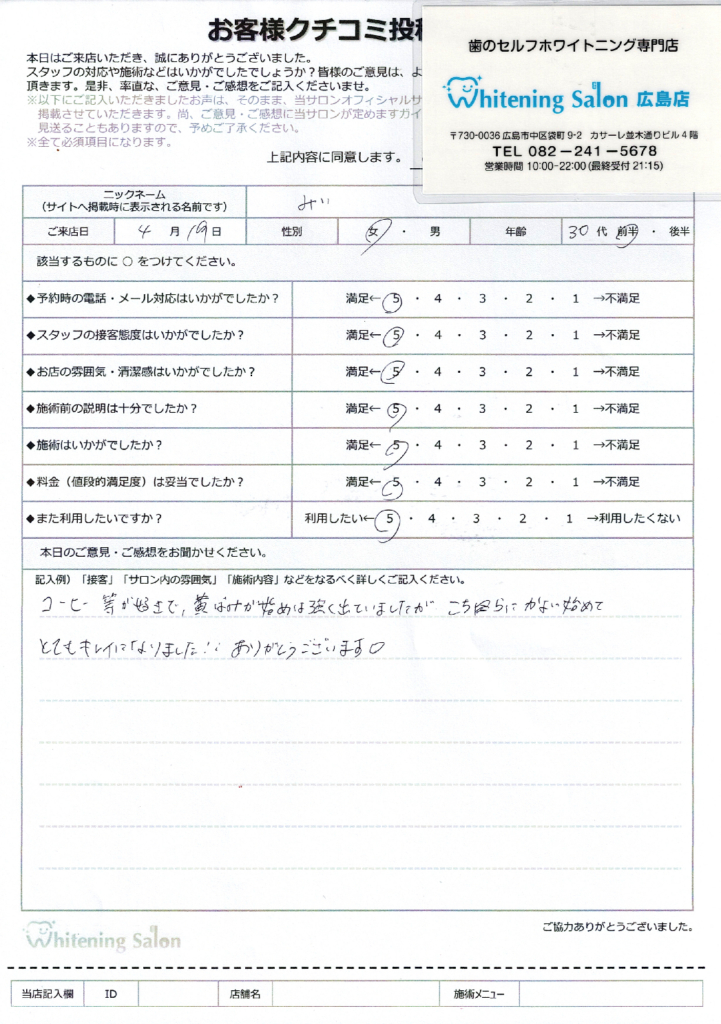 お客様クチコミ投稿
本日はご来店いただき、誠にありがとうございました。
スタッフの対応や施術などはいかがでしたでしょうか？皆様のご意見は、よ
頂きます。是非、率直な、ご意見・ご感想をご記入くださいませ。
※以下にご記入いただきましたお声は、そのまま、当サロンオフィシャルサ
掲載させていただきます。尚、ご意見・ご感想に当サロンが定めますガイ
見送ることもありますので、予めご了承ください。
※全て必須項目になります。
上記内容に同意します。
歯のセルフホワイトニング専門店
Whitening Salon 広島店
〒730-0036 広島市中区袋町 9-2 カサーレ並木通りビル 4 階
TEL 082-241-5678
営業時間 10:00-22:00 (最終受付 21:15)
ニックネーム
(サイトへ掲載時に表示される名前です)
みい
ご来店日 4 月 19 日 性別 女 ・ 男 年齢 30 代 前半 ・ 後半
該当するものに ○ をつけてください。
◆予約時の電話・メール対応はいかがでしたか？ 満足← 5 ・ 4 ・ 3 ・ 2 ・ 1 →不満足
◆スタッフの接客態度はいかがでしたか？ 満足← 5 ・ 4 ・ 3 ・ 2 ・ 1 →不満足
◆お店の雰囲気・清潔感はいかがでしたか？ 満足← 5 ・ 4 ・ 3 ・ 2 ・ 1 →不満足
◆施術前の説明は十分でしたか？ 満足← 5 ・ 4 ・ 3 ・ 2 ・ 1 →不満足
◆施術はいかがでしたか？ 満足← 5 ・ 4 ・ 3 ・ 2 ・ 1 →不満足
◆料金（値段的満足度）は妥当でしたか？ 満足← 5 ・ 4 ・ 3 ・ 2 ・ 1 →不満足
◆また利用したいですか？ 利用したい← 5 ・ 4 ・ 3 ・ 2 ・ 1 →利用したくない
本日のご意見・ご感想をお聞かせください。
記入例）「接客」「サロン内の雰囲気」「施術内容」などをなるべく詳しくご記入ください。
コーヒー 等が好きで, 黄ばみが始めは強く出ていましたが こちらに かよい始めて
とてもキレイになりました!! ありがとうございます♡
ご協力ありがとうございました。
Whitening Salon
当店記入欄 ID 店舗名 施術メニュー